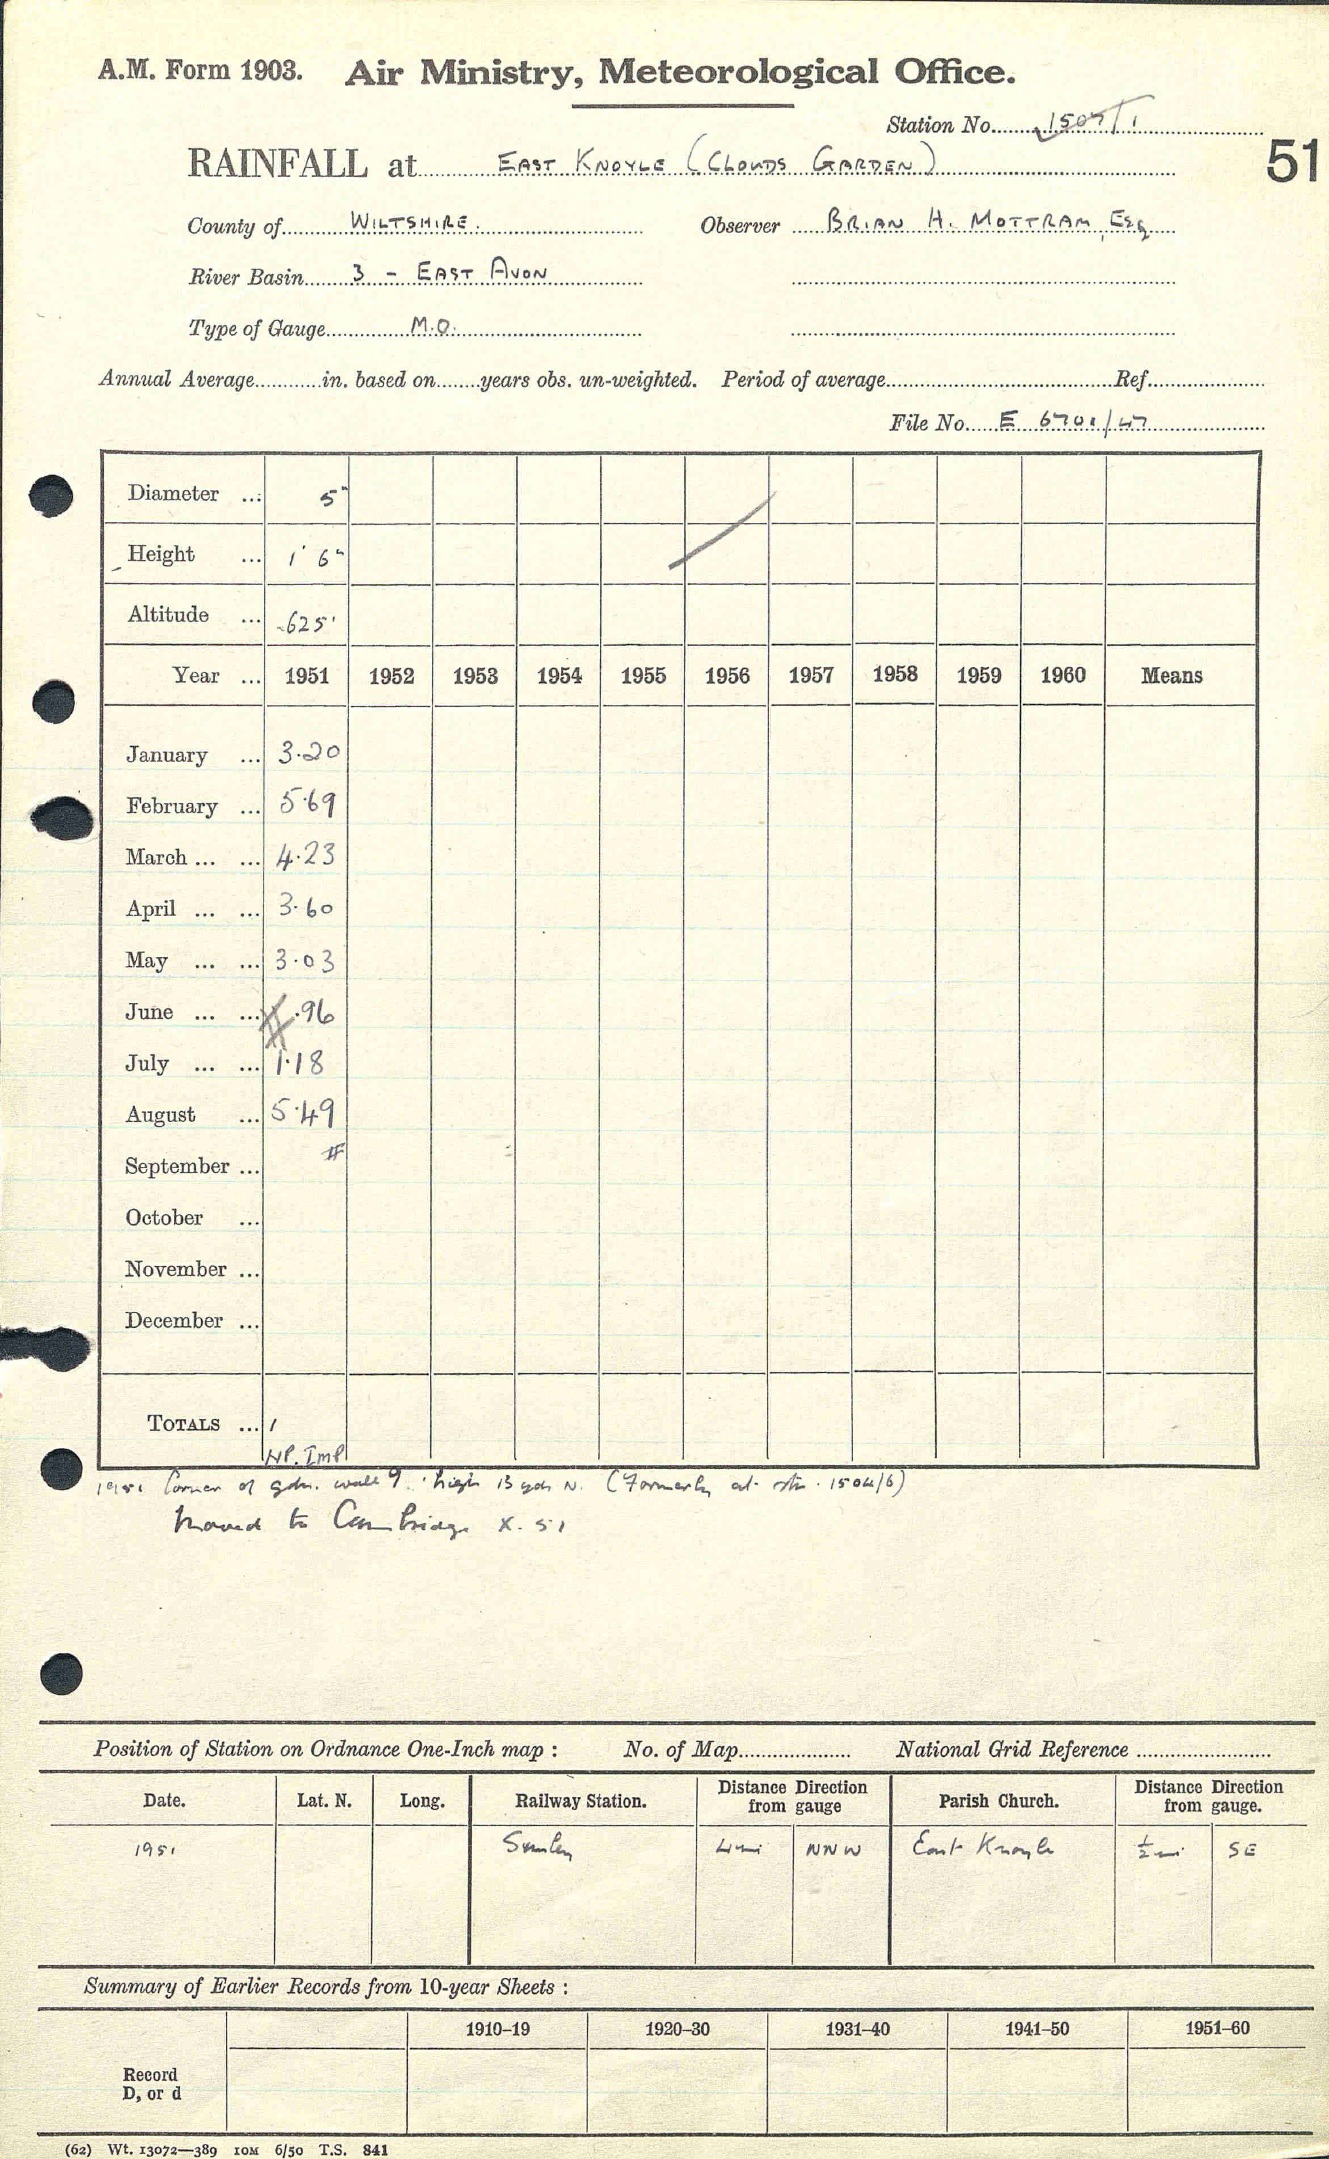 A.M. Form 1903. Air Ministry, Meteorological Office.
Station No. 1507/1
RAINFALL at EAST KNOYLE (CLOUDS GARDEN)
51
County of WILTSHIRE. Observer BRIAN H. MOTTRAM, Esq
River Basin 3 - EAST AVON
Type of Gauge M.O.
Annual Average............in. based on........years obs. un-weighted. Period of average............Ref............
File No. E 6701/47
Diameter ... 5"
Height ... 1' 6"
Altitude ... 625'
Year ... 1951 1952 1953 1954 1955 1956 1957 1958 1959 1960 Means
January ... 3.20
February ... 5.69
March ... ... 4.23
April ... ... 3.60
May ... ... 3.03
June ... ... .96
July ... ... 1.18
August ... 5.49
September ... #
October ...
November ...
December ...
TOTALS ... 1
NP. Imp
1951 Corner of gdn. wall 9' high 13 yds N. (Formerly at stn. 1504/6)
Moved to Cambridge X. 51
Position of Station on Ordnance One-Inch map : No. of Map............ National Grid Reference ............
Date. Lat. N. Long. Railway Station. Distance Direction from gauge Parish Church. Distance Direction from gauge.
1951 Semley 4 mi NNW East Knoyle ½ mi SE
Summary of Earlier Records from 10-year Sheets :
1910–19 1920–30 1931–40 1941–50 1951–60
Record
D, or d
(62) Wt. 13072—389 10M 6/50 T.S. 841